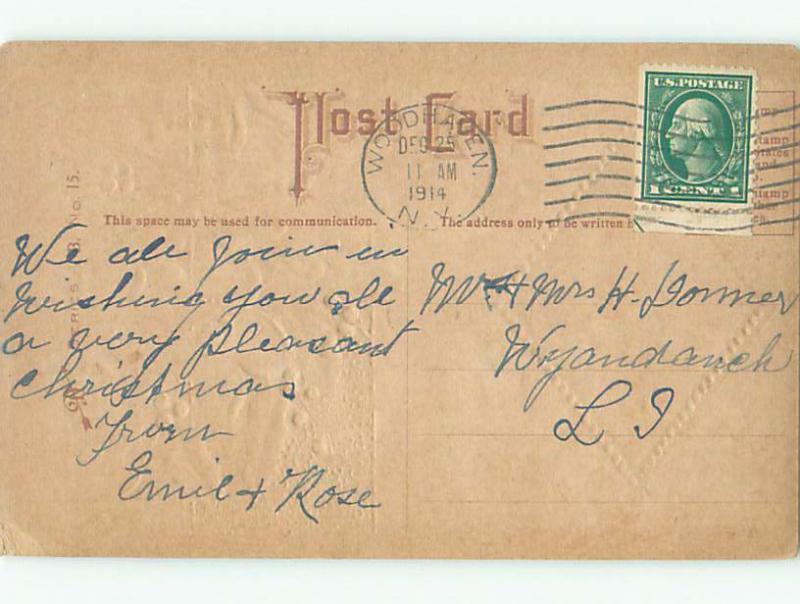 Post Card
WOODHAVEN.
DEC 25
11 AM
1914
N.Y.
U.S. POSTAGE
1 CENT 1
This space may be used for communication.
The address only to be written
No. 15.
We all join in
wishing you all
a very pleasant
Christmas
From
Emil & Rose
Mr & Mrs H. Donner
Wyandanch
L I